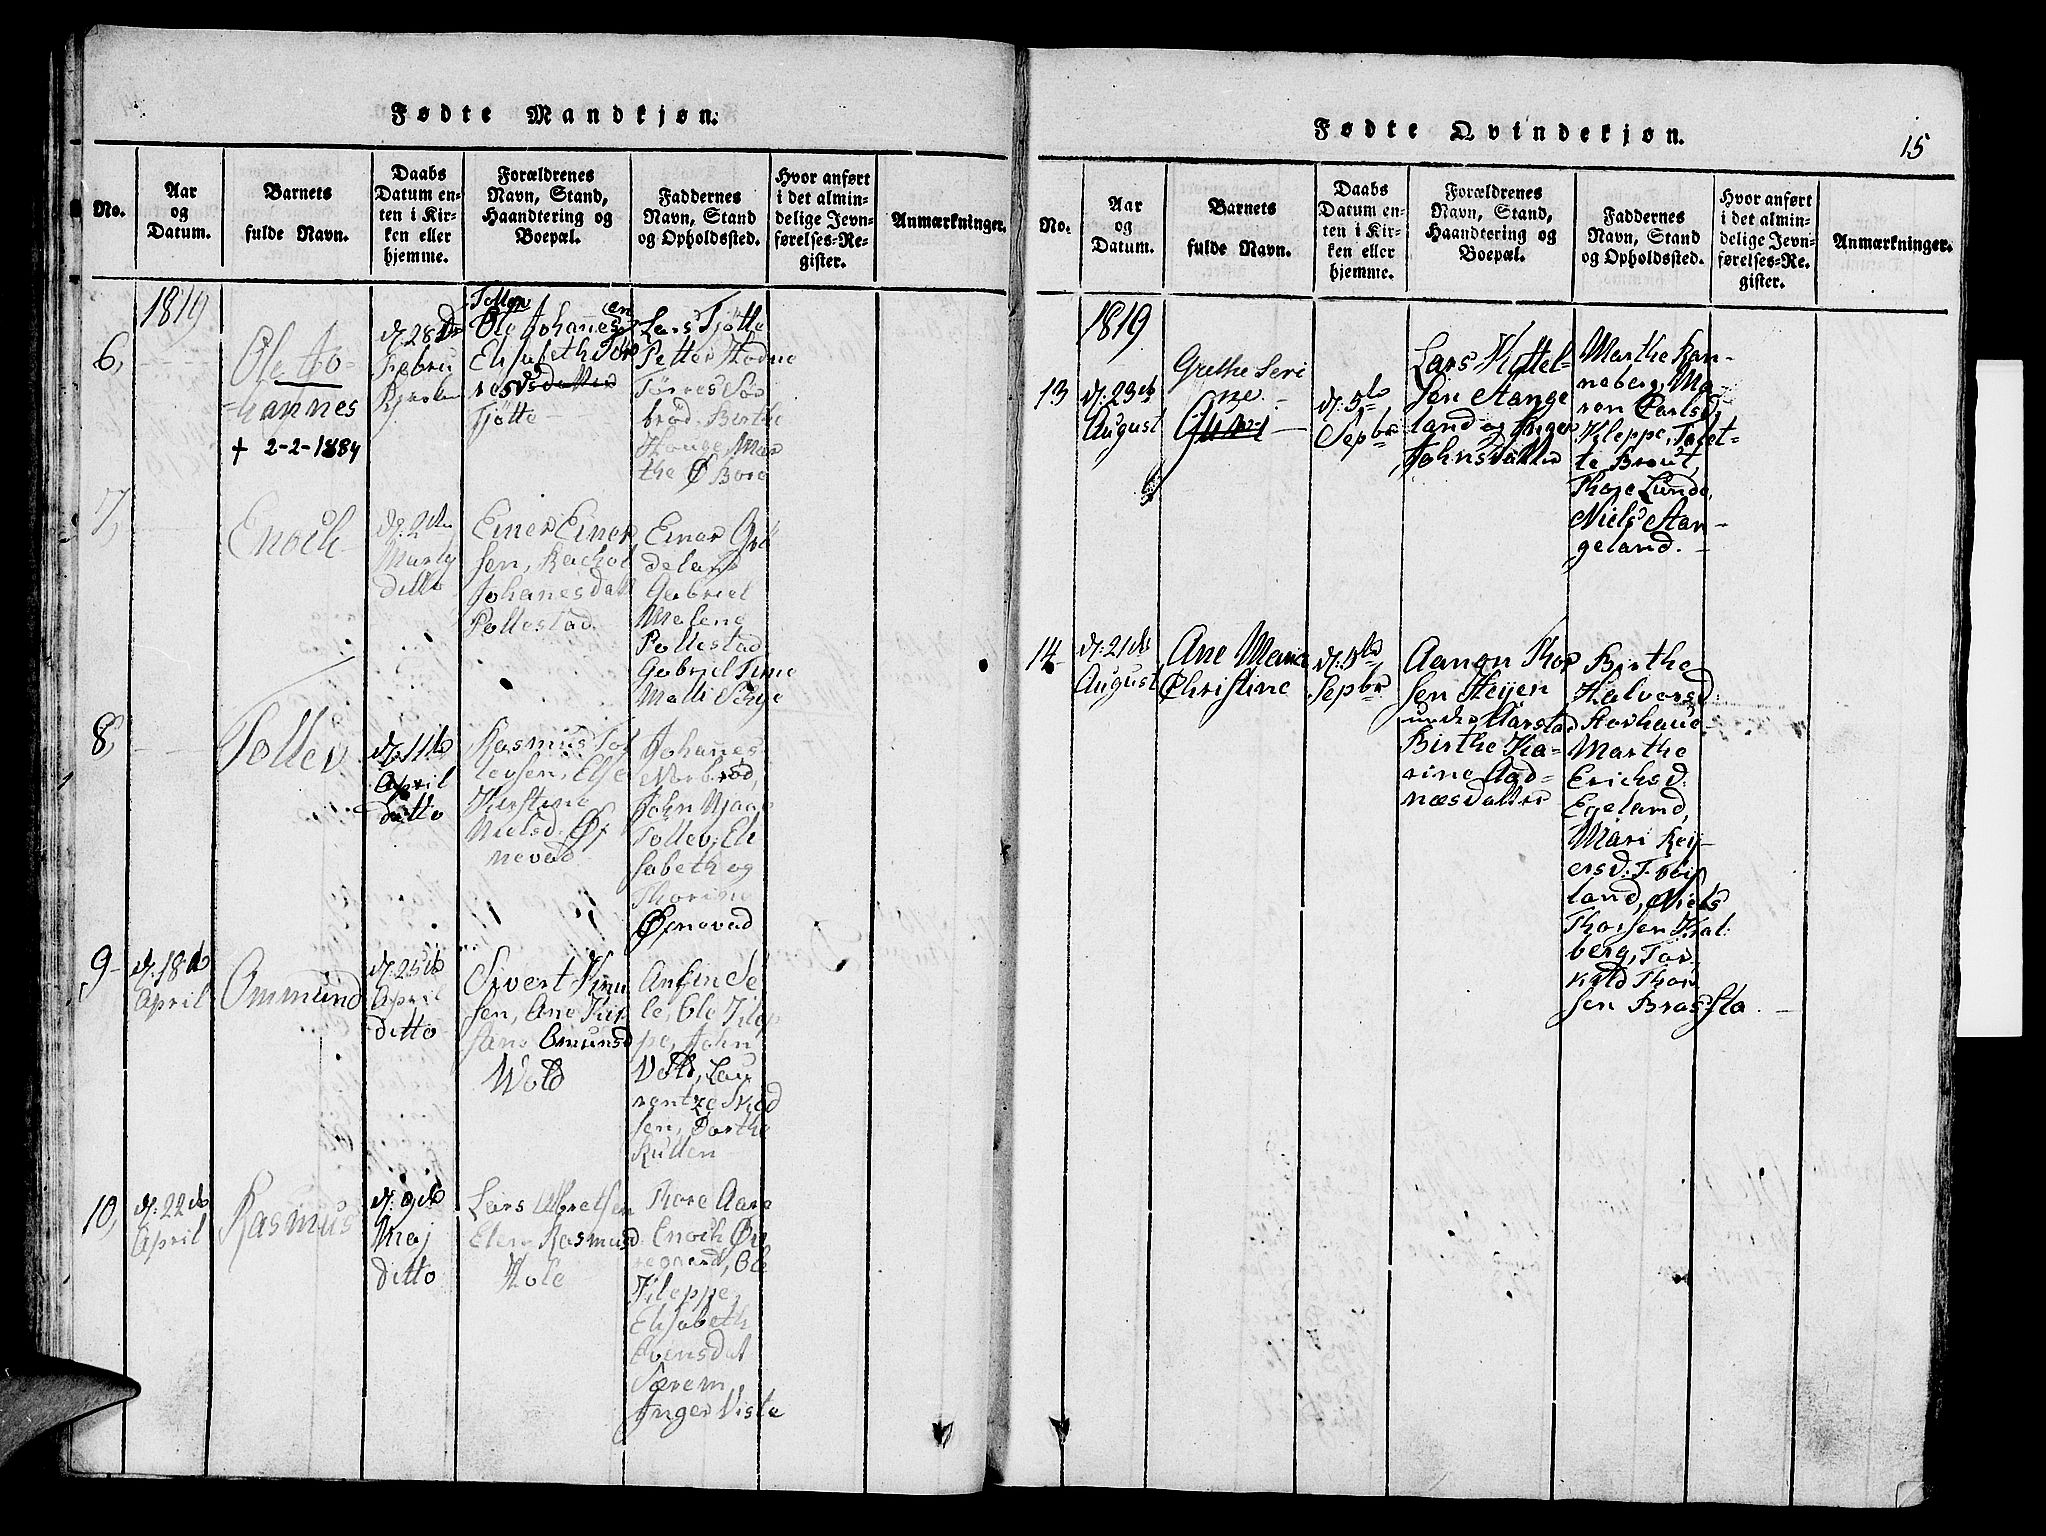 Fødte Mandkjøn.
No.
Aar
og
Datum.
Barnets
fulde Navn.
Daabs
Datum en-
ten i Kir-
ken eller
hjemme.
Forældrenes
Navn, Stand,
Haandtering og
Boepæl.
Faddernes
Navn, Stand
og Opholdssted.
Hvor anført
i det almin-
delige Jevn-
førelses-Re-
gister.
Anmærkninger.
1819
6,
Ole Jo-
hannes
+ 2-2-1884
d: 28de
Febru
Ole Johannes
Elisabeth
Tjøtte
Lars Tjøtte
Petter Hodne
Tørres
brød. Birthe
Houge, Mar
the Ø Bore
7,
Enoch
d: 2den
Marty
ditto
Einer Einer
sen, Rachel
Johanesdatt
Pollestad.
Einar Grø
deland
Gabriel
Malene
Pollestad
Gabriel Time
Malli
8,
Tollev
d: 11te
April
ditto
Rasmus Tol
levsen, Else
Kirstine
Nielsd. Øx
nevad
Johannes
Norbrød,
John Njaa
Tollev, Eli
sabeth og
Thorine
Øxnevad
9
d: 18de
April
Ommund
d: 25de
April
ditto
Sivert Knu
sen, Ane Kir
stine Omunsd
Wold
Anfin Se
le, Ole Filep
pe, John
Vold, Lau
rentze Mad
sen, Dorthe
Rullen
10,
d: 22de
April
Rasmus
d: 9de
Maj
ditto
Lars Albretsen
Elen Rasmusd
Hole
Thore Aare
Enoch Øx
Ole
Fileppe,
Elisabeth
Evensdat
Særem,
Inger Visle
Fødte Qvindekjøn.
15
No.
Aar
og
Datum.
Barnets
fulde Navn.
Daabs
Datum en-
ten i Kir-
ken eller
hjemme.
Forældrenes
Navn, Stand,
Haandtering og
Boepæl.
Faddernes
Navn, Stand
og Opholdssted.
Hvor anført
i det almin-
delige Jevn-
førelses-Re-
gister.
Anmærkninger.
1819
13
d: 23de
August
Grethe Seri
ne.
d: 5te
Sepbr
Lars Kittel-
sen Stange
land og Inger
Johnsdatter
Marthe Ran-
neberg, Ma
ren Carlsd
Kleppe, Talet-
te Braut,
Thore Lunde,
Niels Stan-
geland.
14
d: 21de
August
Ane Marie
Christine
d: 5te
Sepbr
Aanon Thor
sen Heijen
under Aarstad
Birthe Ka-
rine Aad-
næsdatter
Birthe
Halvorsd:
Rovhaue
Marthe
Erichsd:
Egeland,
Mari Reij-
ersd:
land, Niels
Thorsen Kal-
berg, Tor
kild Thor
sen Brassta